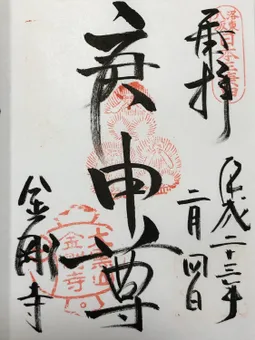 奉拝
平成二十三年
二月四日
庚申尊
金剛寺